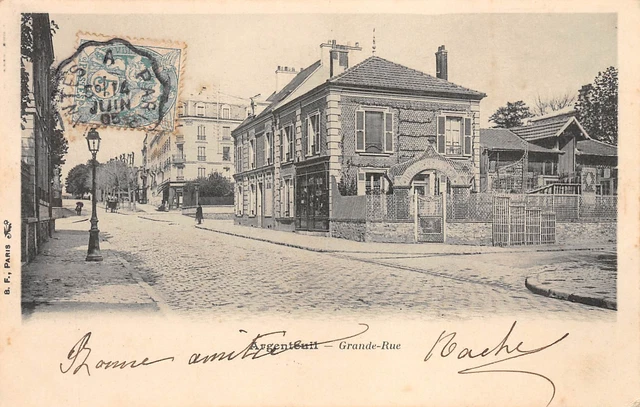 A
PAR
14
JUIN
05
B. F., PARIS
Argenteuil – Grande-Rue
Bonne amitié Roche